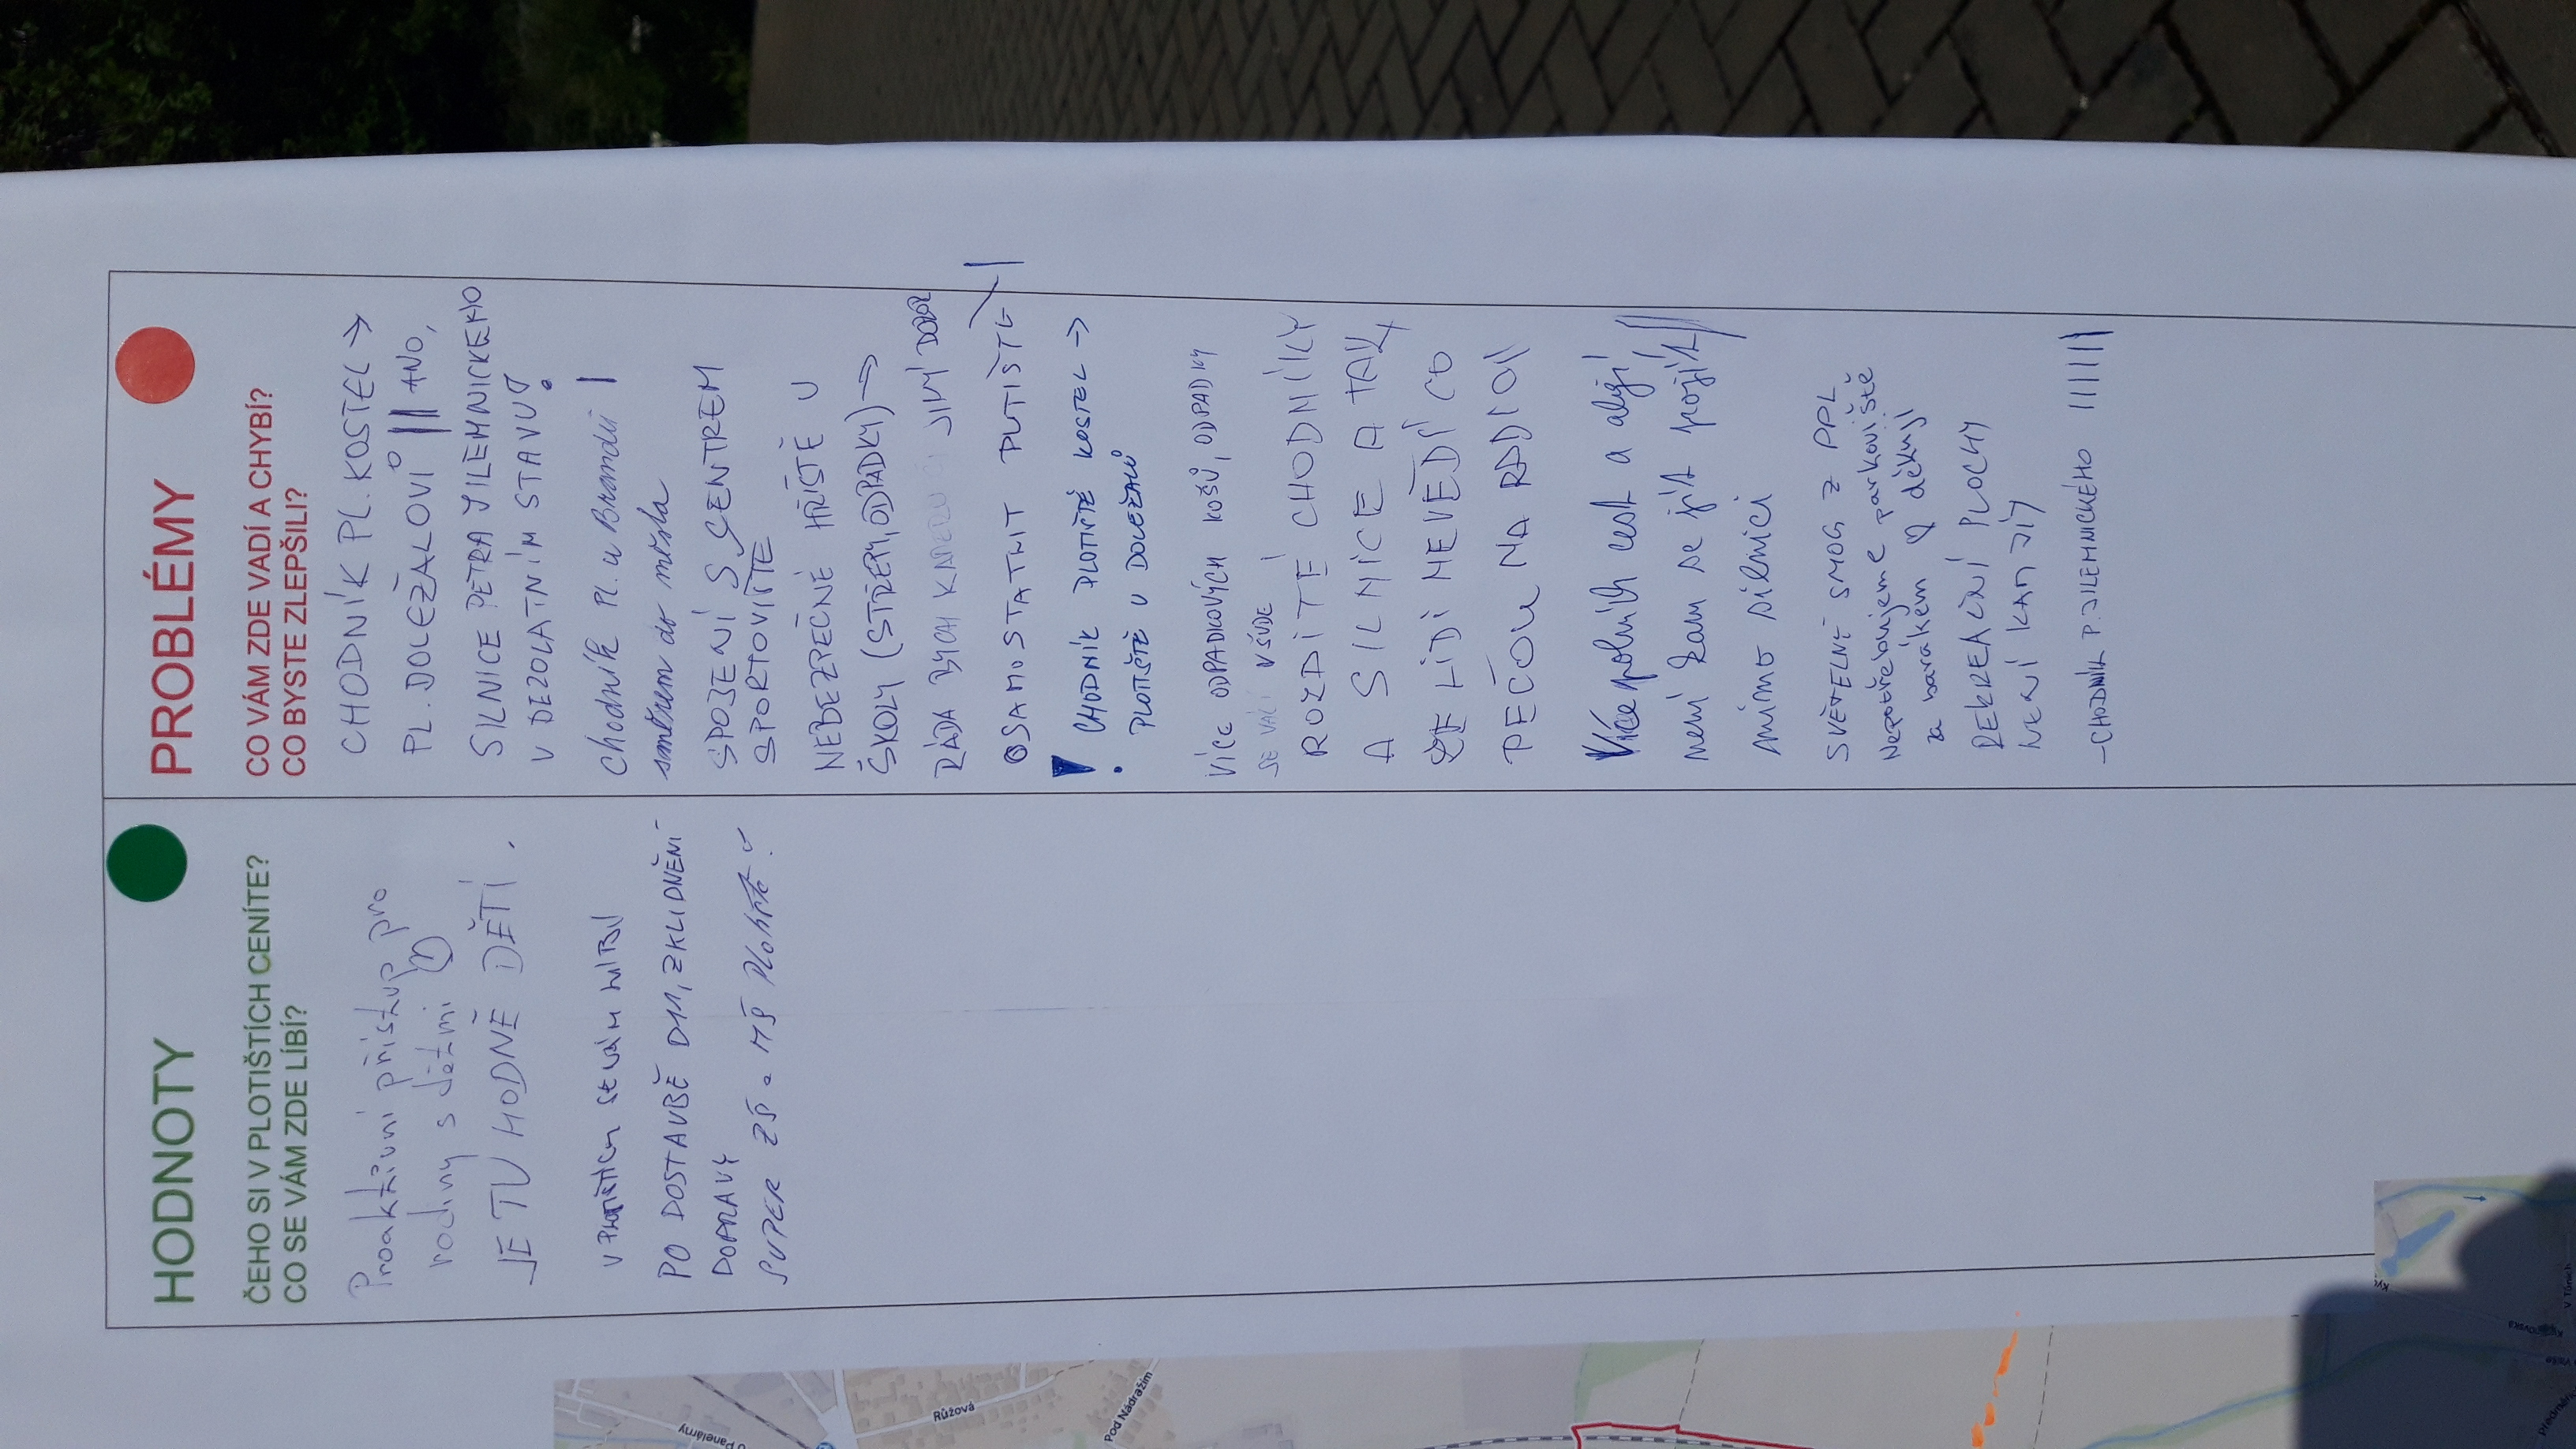 HODNOTY
ČEHO SI V PLOTIŠTÍCH CENÍTE?
CO SE VÁM ZDE LÍBÍ?
Proaktivní přístup pro
rodiny s dětmi
JE TU HODNĚ DĚTÍ.
PO DOSTAVBĚ D11, ZKLIDNĚNÍ
DOPRAVY
SUPER ZŠ a MŠ
PROBLÉMY
CO VÁM ZDE VADÍ A CHYBÍ?
CO BYSTE ZLEPŠILI?
CHODNÍK PL. KOSTEL →
PL. DOLEŽALOVI || ANO,
SILNICE PETRA JILEMNICKEHO
V DEZOLATNÍM STAVU!
Chodník Pl. u Brandů |
směrem do města
SPOJENÍ S CENTREM
SPORTOVIŠTĚ
NEBEZPEČNÉ HŘIŠTĚ U
ŠKOLY (STŘEPY, ODPADKY) →
RÁDA BYCH
OSAMOSTATNIT PLTIŠTĚ
! CHODNÍK PLOTIŠTĚ KOSTEL →
PLOTIŠTĚ U DOLEŽALŮ
VÍCE ODPADKOVÝCH KOŠŮ, ODPADKY
SE VÁLÍ VŠUDE
ROZŠÍŘTE CHODNÍKY
A SILNICE A TAKY
LIDI NEVĚDÍ CO
PEČOU NA RADIOI
Více polních cest a alejí
není kam se jít projít
mimo silnici
SVĚTELNÝ SMOG Z PPL
Nepotřebujeme parkoviště
za barákem děkuji
REKREAČNÍ PLOCHY
NENÍ KAM JÍT
- CHODNÍK P. JILEMNICKÉHO ||||||
Růžová
Pod Nádražím
V Tůních